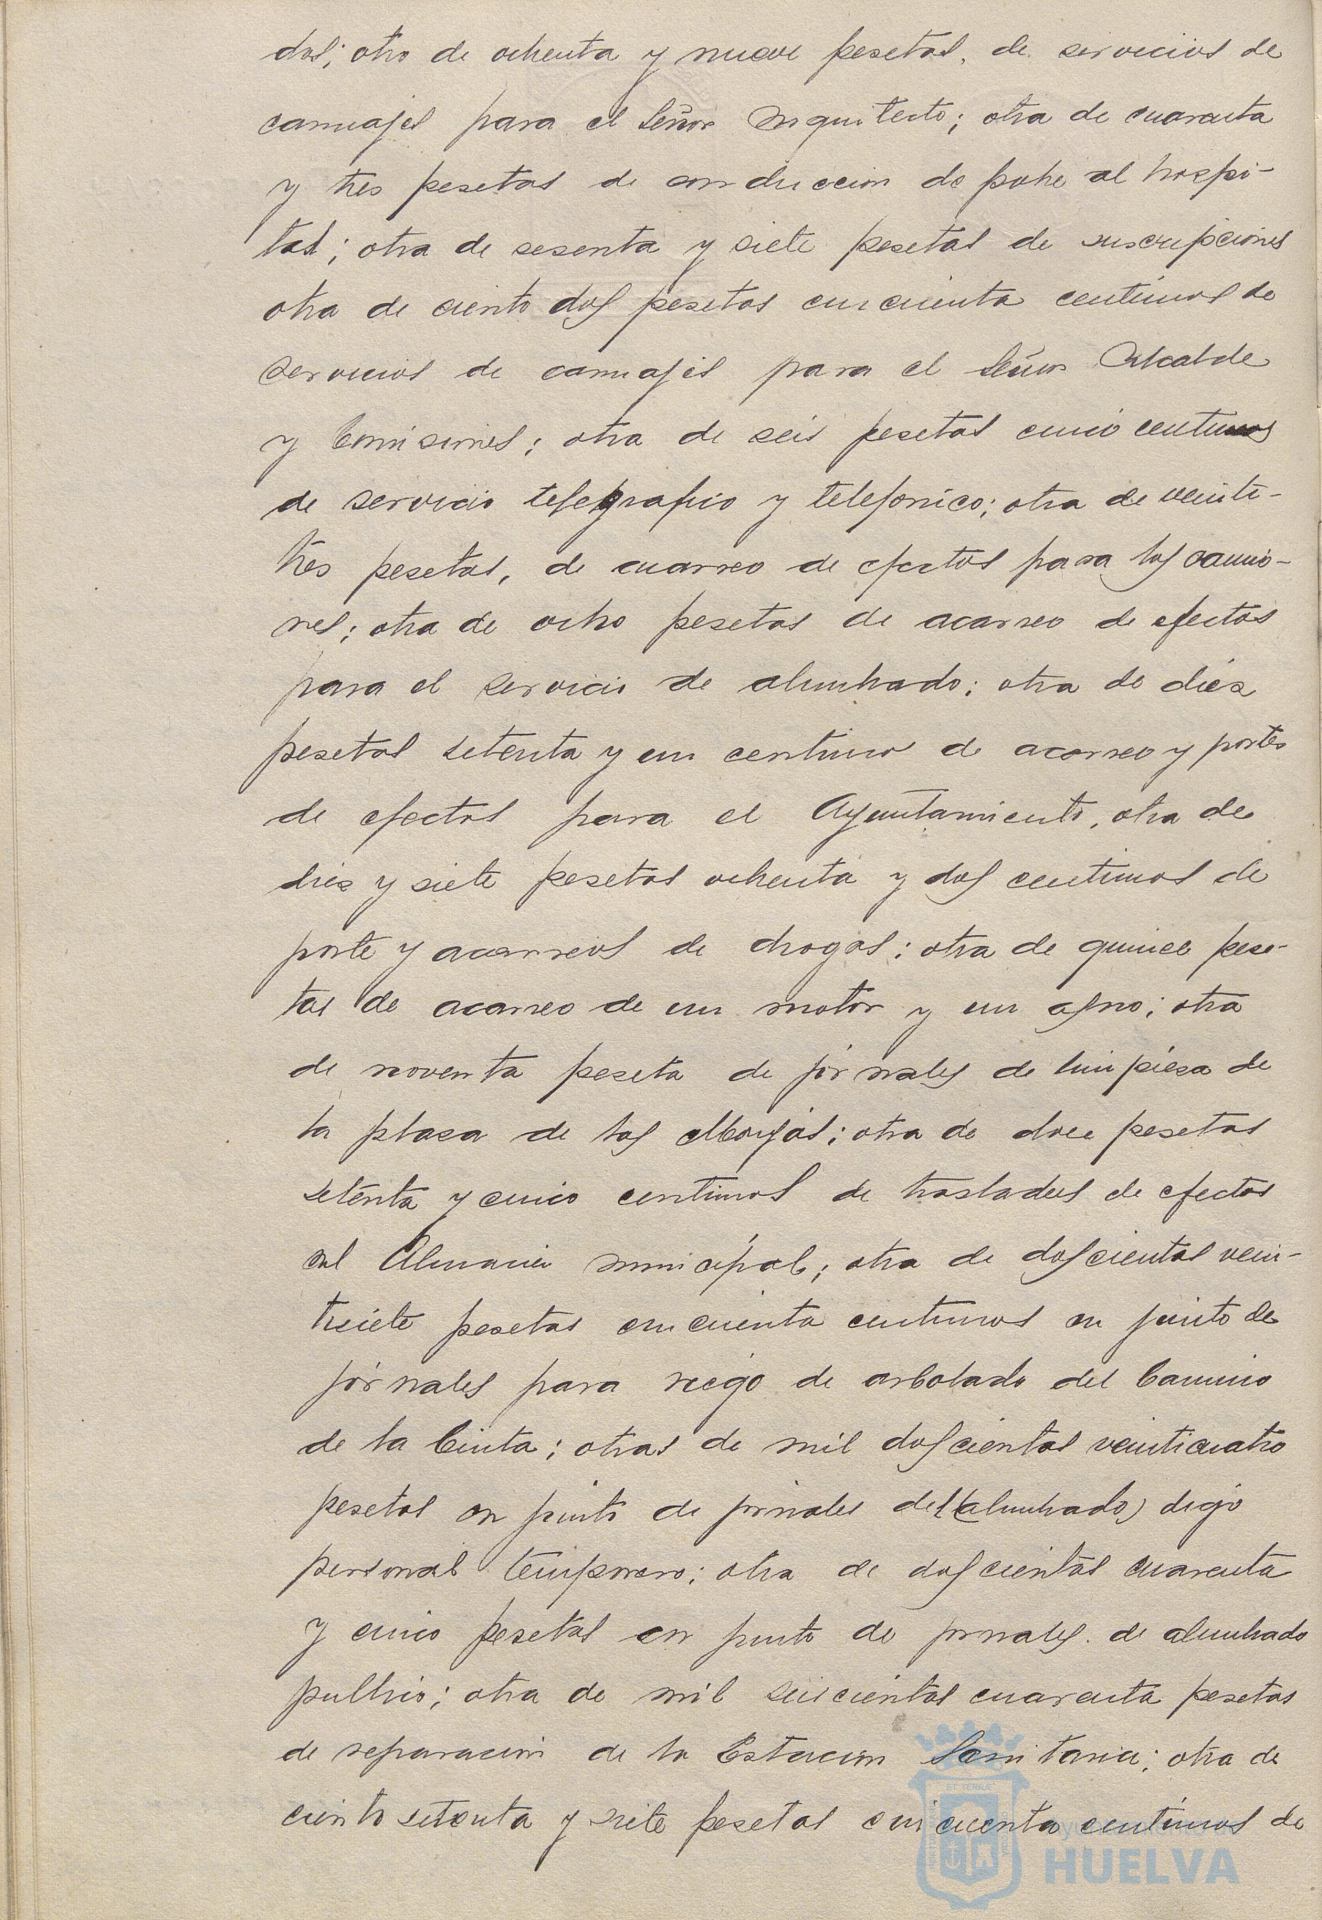 dos; otro de ochenta y nueve pesetas, de servicios de
carruajes para el Señor Arquitecto; otra de cuarenta
y tres pesetas de conducción de pobre al hospi-
tal; otra de sesenta y siete pesetas de suscripciones
otra de ciento dos pesetas cincuenta centimos de
servicios de carruajes para el Señor Alcalde
y Comisiones; otra de seis pesetas cinco centimos
de servicio telegrafico y telefonico; otra de veinti-
tres pesetas, de acarreo de efectos para los camio-
nes; otra de ocho pesetas de acarreo de efectos
para el servicio de alumbrado; otra de diés
pesetas setenta y un centimos de acarreo y portes
de efectos para el Ayuntamiento, otra de
dies y siete pesetas ochenta y dos centimos de
porte y acarreos de drogas; otra de quince pese-
tas de acarreo de un motor y un asno; otra
de noventa peseta de jornales de limpiesa de
la plasa de las Monjas; otra de doce pesetas
setenta y cinco centimos de traslados de efectos
al Almacen municipal; otra de doscientas vein-
tisiete pesetas cincuenta centimos en junto de
jornales para riego de arbolado del Camino
de la Cinta; otras de mil doscientas veinticuatro
pesetas en junto de jornales del (alumbrado) digo
personal temporero; otra de doscientas cuarenta
y cinco pesetas en junto de jornales de alumbrado
publico; otra de mil seiscientas cuarenta pesetas
de reparacion de la Estacion Sanitaria; otra de
ciento setenta y siete pesetas cincuenta centimos de
Ayuntamiento de
HUELVA